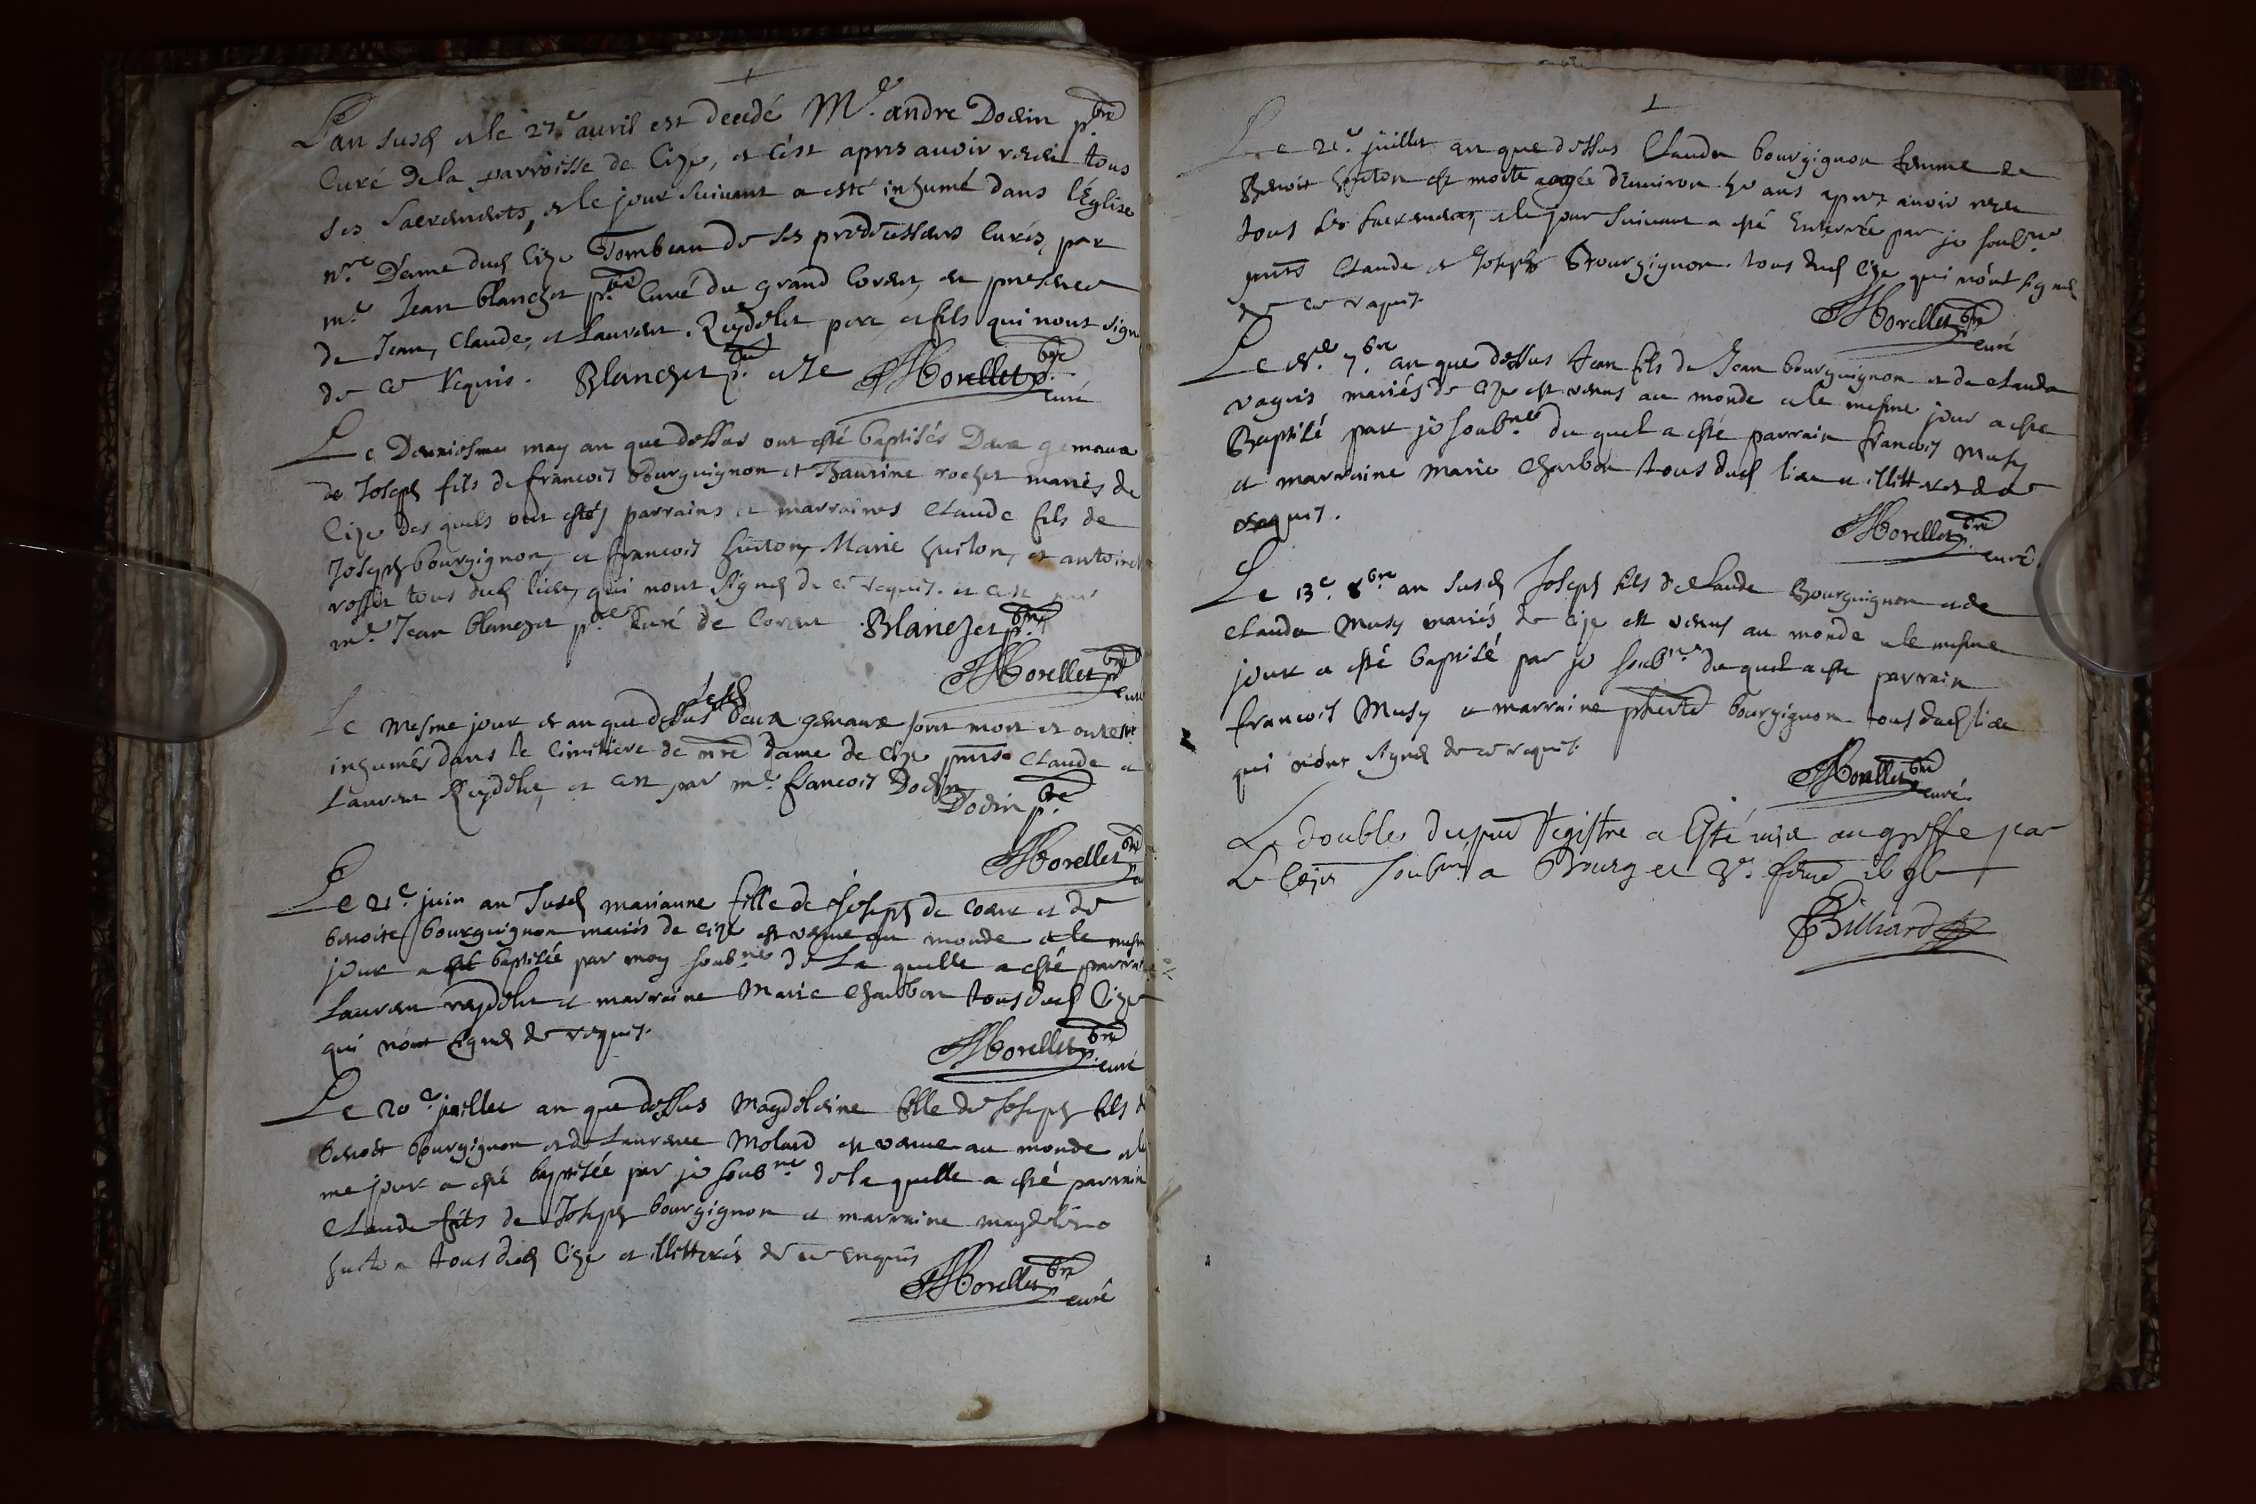 L'an susd et le 27e avril est decedé Mre andre Dodin pbre
Curé de la parroisse de Cize, et c'est apres avoir receu tous
ses Sacrements, et le jour suivant a esté inhumé dans l'Eglise
nre Dame dud Cize Tombeau de ses predecesseurs Curés, par
mre Jean blanchet pbre Curé du grand Corent, en presence
de Jean, Claude, et Laurent Reydelet pere et fils qui n'ont signé
de ce Requis. Blanchet pbre et Je Morellet pbre
curé
Le Deuxiesme may an que dessus ont esté baptisés Deux gemaux
de Joseph fils de francois bourguignon et Thaurine rochet mariés de
Cize des quels ont estés parrains et marraines Claude fils de
Joseph bourgignon, et francois huiton, Marie huiton, et antoinet
rosset tous dud lieu, qui n'ont signes de ce requis. et c'est par
mre Jean blanchet pbre Curé de Corent Blanchet pbre
Morellet pbre
curé
Le mesme jour et an que dessus lesd deux gemaux sont mort et ont esté
inhumés dans le Cimitiere de nre dame de Cize pnts Claude et
Laurent Reydelet, et c'est par mre francois Dodin
Dodin pbre
Morellet pbre
Le 21e juin an susd marianne fille de Joseph de Coeur et de
benoite bourguignon mariés de Cize est venue au monde et le mesme
jour a esté baptisée par moy soubne de La quelle a esté parrain
Laurent reydelet et marraine Marie Charbon tous dud Cize
qui n'ont signes de requis.
Morellet pbre
curé
Le 20e juillet an que dessus Magdeleine fille de Joseph fils de
benoit bourgignon et de Laurence Molard est venue au monde et le
me jour a esté baptisée par je soubne de la quelle a esté parrain
Claude fils de Joseph bourgignon et marraine magdeleine
huiton tous dud Cize et illitterés de ce enquis
Morellet pbre
curé
Le 21e juillet an que dessus Clauda bourgignon femme de
Benoit huiton est morte aagée d'environ ans apres avoir receu
tous les sacrements, et le jour suivant a esté Enterrée par je soubne
pnts Claude et Joseph Bourgignon tous dud Cize qui n'ont signes
de ce requis.
Morellet pbre
curé
Le 7bre an que dessus Jean fils de Jean bourguignon et de Clauda
vaguis mariés de Cize est venus au monde et le mesme jour a esté
Baptisé par je soubne du quel a esté parrain francois Musy
et marraine Marie Charbon tous dud lieu et illitterés de ce
requis.
Morellet pbre
curé
Le 13e 8bre an susd Joseph fils de Claude Bourguignon et de
Clauda Musy mariés de Cize est venus au monde et le mesme
jour a esté baptisé par je soubne du quel a esté parrain
francois Musy et marraine bourgignon tous dud lieu
qui n'ont signes de ce requis.
Morellet pbre
curé
Le double du pnt Registre a Esté mis au greffe par
Le soubné a Bourg ce
Billiard